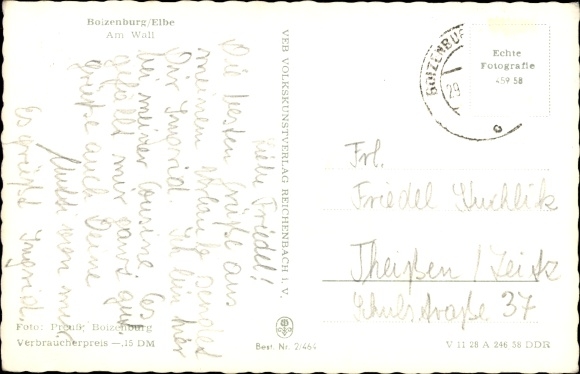 Boizenburg/Elbe
Am Wall
Liebe Friedel!
Die besten Grüße aus
meinem Urlaub sendet
Dir Ingrid. Ich bin hier
bei meiner Cousine. Es
gefällt mir ganz gut.
Grüße auch Deine
Mutti von mir.
Es grüßt Ingrid.
Foto: Preuß, Boizenburg
Verbraucherpreis —.15 DM
VEB VOLKSKUNSTVERLAG REICHENBACH i. V.
Best. Nr. 2/464
BOIZENBUR
29
c
Echte
Fotografie
459 58
Frl.
Friedel Kuchlik
Theißen / Zeitz
Schulstraße 37
V 11 28 A 246 58 DDR